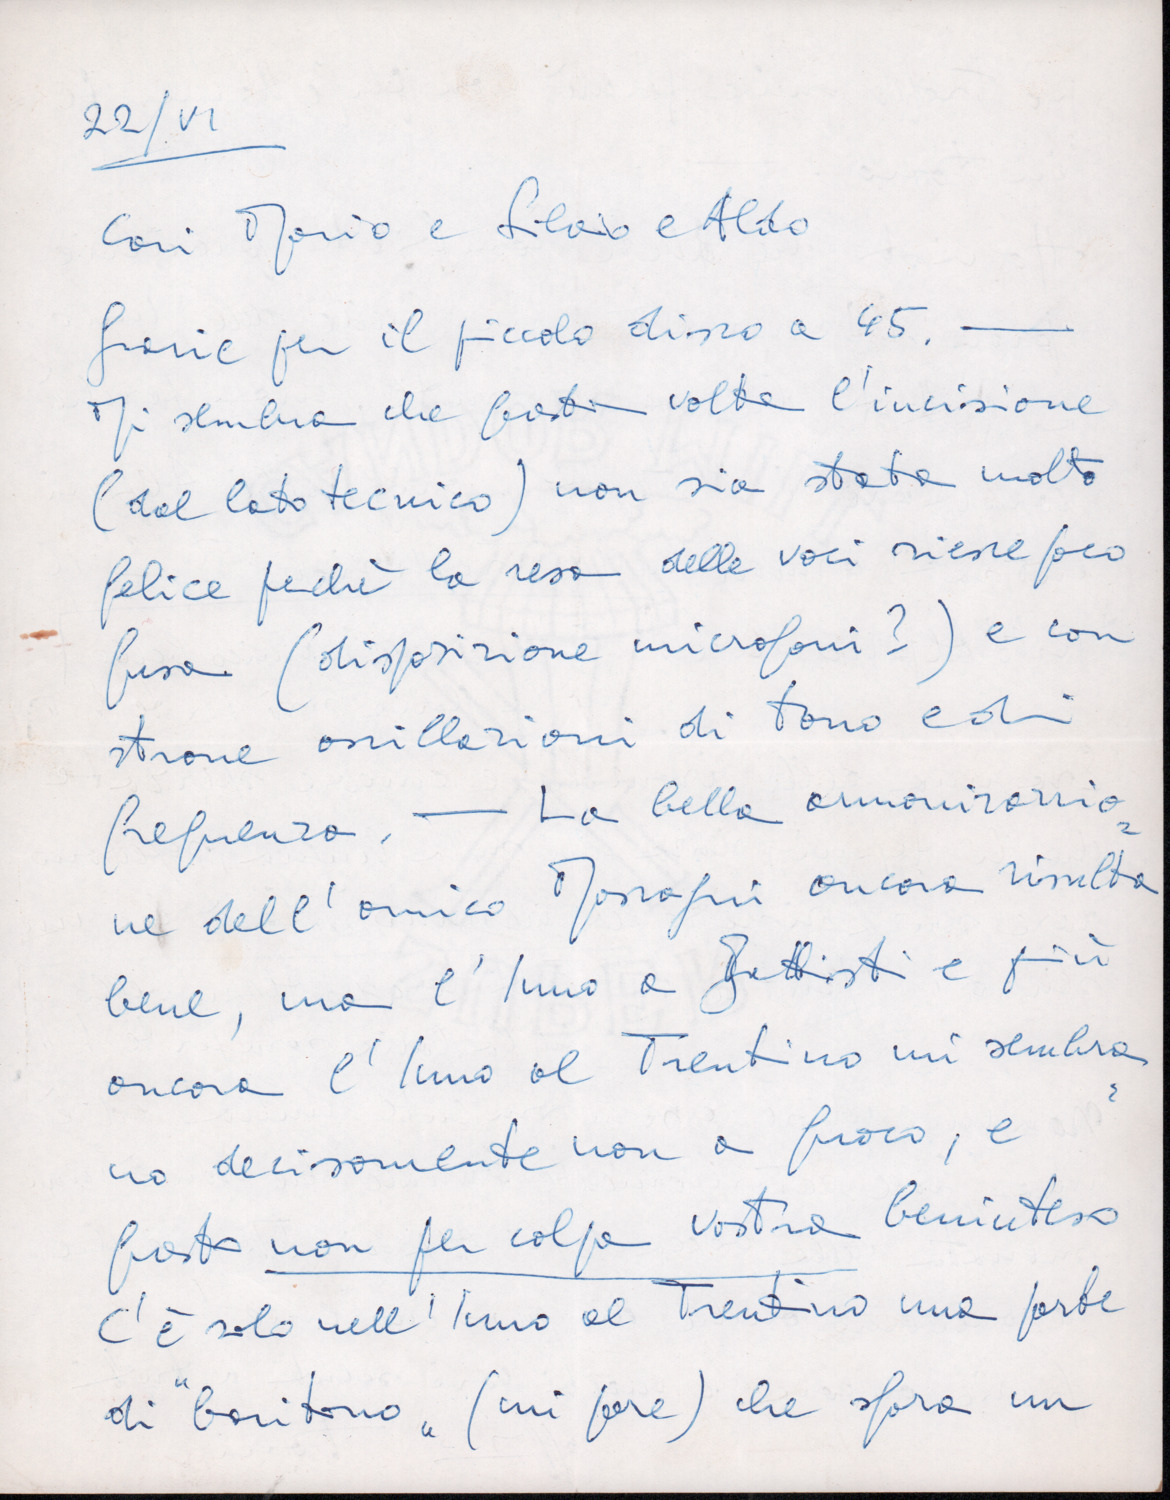 22/VI
Cari Mario e Silvio e Aldo
Grazie per il piccolo disco a 45. —
Mi sembra che questa volta l'incisione
(dal lato tecnico) non sia stata molto
felice perchè la resa delle voci riesce poco
fusa (disposizione microfoni?) e con
strane oscillazioni di tono e di
frequenza. — La bella armonizzazio=
ne dell'amico Mascagni ancora risulta
bene, ma l'Inno a Battisti e più
ancora l'Inno al Trentino mi sembra=
no decisamente non a fuoco, e
questo non per colpa vostra beninteso
C'è solo nell'Inno al Trentino una parte
di "baritono" (mi pare) che sfora un